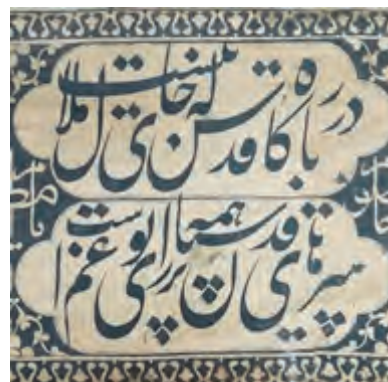 در بارگاه قدس که جای ملال نیست
سرهای قدسیان همه بر زانوی غم است